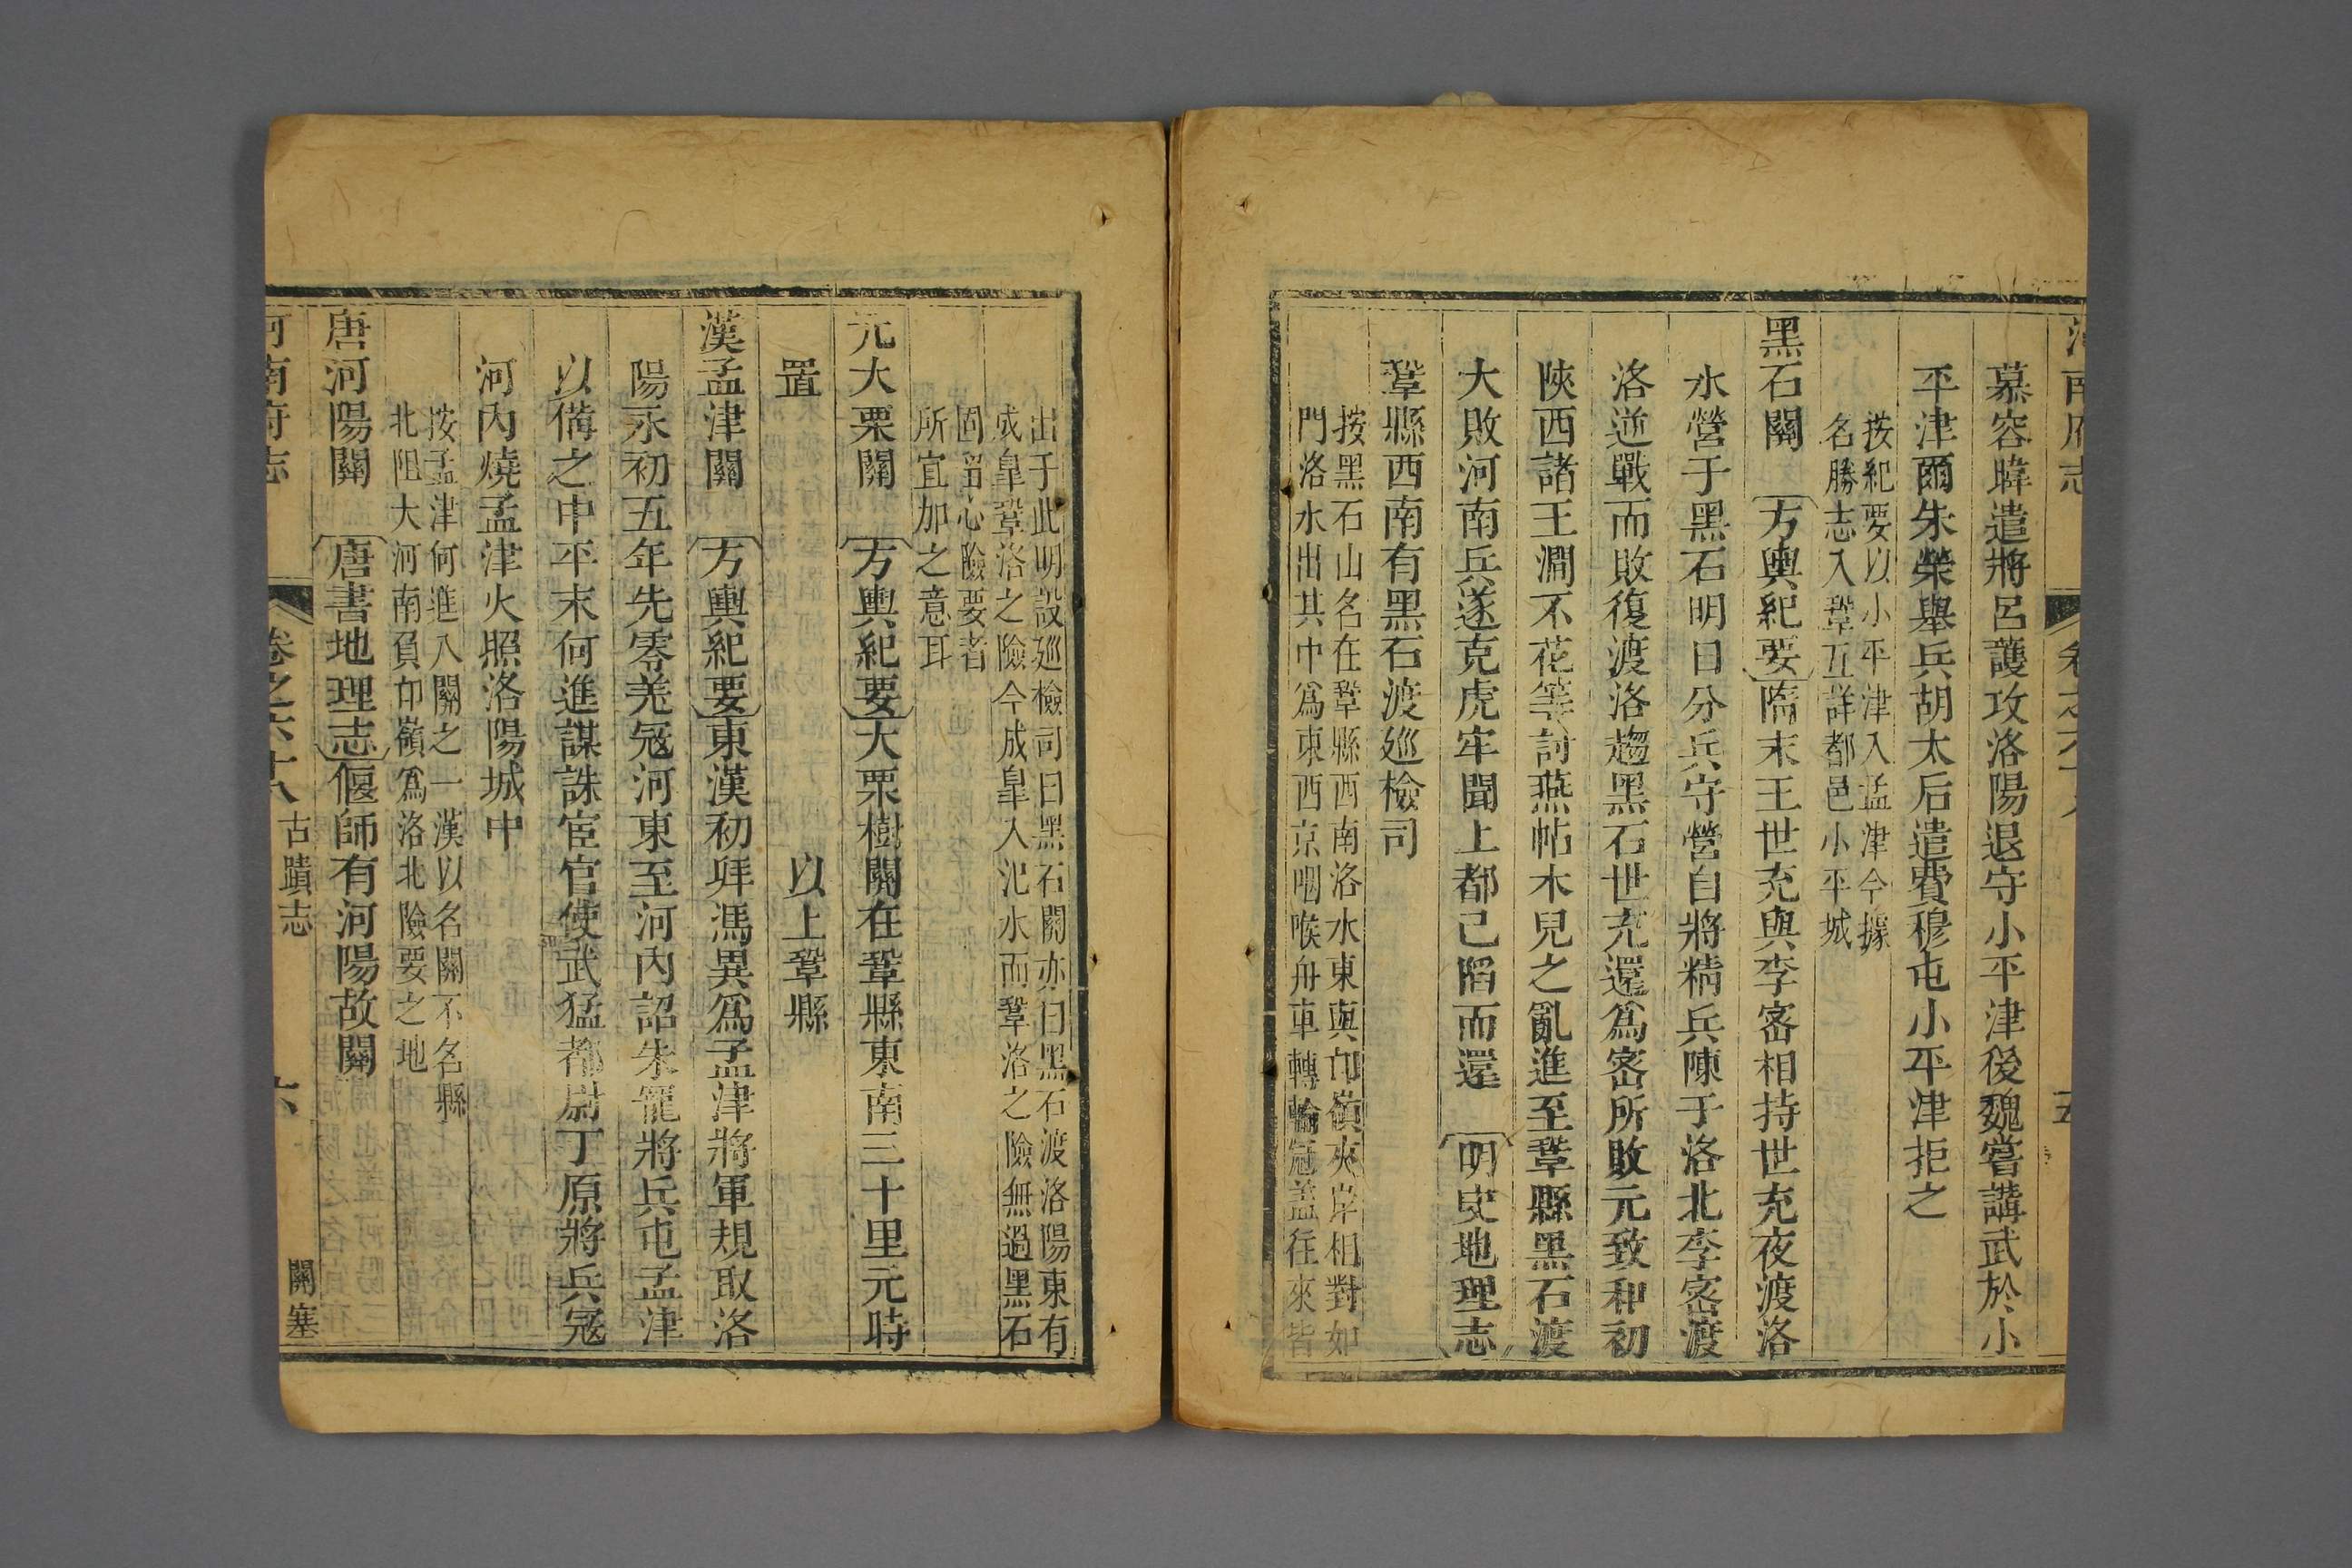 慕容暐遣將呂護攻洛陽退守小平津後魏嘗講武於小
平津爾朱榮舉兵胡太后遣費穆屯小平津拒之
按紀要以小平津入孟津今據
名勝志入鞏互詳都邑小平城
黑石關 方輿紀要 隋末王世充與李密相持世充夜渡洛
水營于黑石明日分兵守營自將精兵陳于洛北李密渡
洛逆戰而敗復渡洛趨黑石世充還爲密所敗元致和初
陝西諸王澗不花等討燕帖木兒之亂進至鞏縣黑石渡
大敗河南兵遂克虎牢聞上都已陷而還 明史地理志
鞏縣西南有黑石渡巡檢司
按黑石山名在鞏縣西南洛水東與邙嶺夾岸相對如
門洛水出其中爲東西京咽喉舟車轉輪冠蓋往來皆
出于此明設巡檢司曰黑石關亦曰黑石渡洛陽東有
成皐鞏洛之險今成皐入汜水而鞏洛之險無過黑石
固留心險要者
所宜加之意耳
元大栗關 方輿紀要 大栗樹關在鞏縣東南三十里元時
置 以上鞏縣
漢孟津關 方輿紀要 東漢初拜馮異爲孟津將軍規取洛
陽永初五年先零羌冦河東至河內詔朱寵將兵屯孟津
以備之中平末何進謀誅宦官使武猛都尉丁原將兵冦
河內燒孟津火照洛陽城中
按孟津何進入關之一漢以名關不名縣
北阻大河南負邙嶺爲洛北險要之地
唐河陽關 唐書地理志 偃師有河陽故關
河南府志 卷之六十八 古蹟志 關塞 六